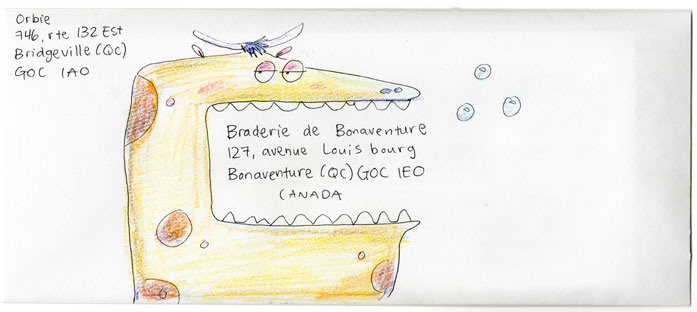 Orbie
746, rte 132 Est
Bridgeville (Qc)
GOC 1A0
Braderie de Bonaventure
127, avenue Louisbourg
Bonaventure (QC) GOC 1E0
CANADA